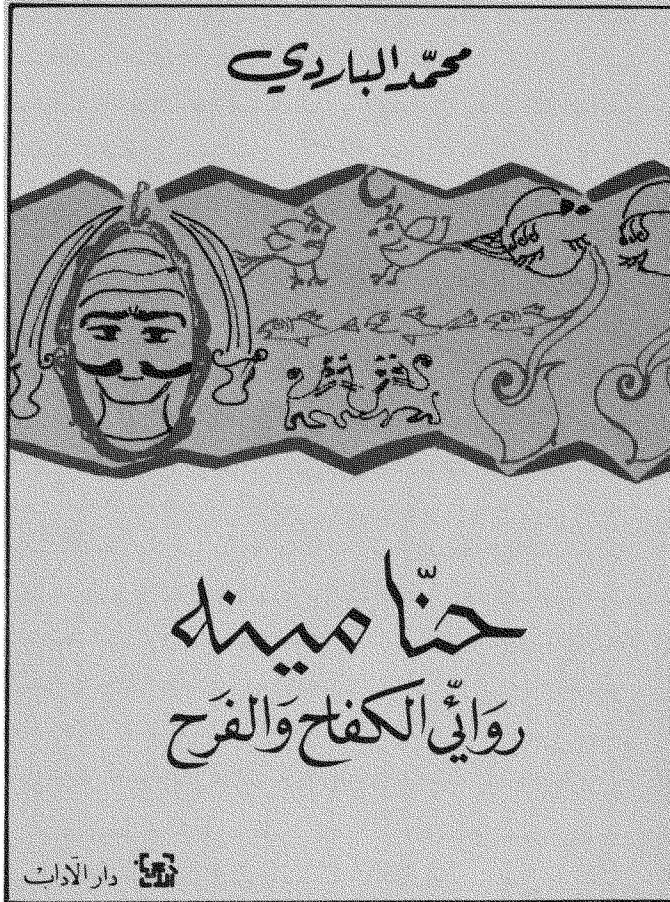 محمّد الباردي
حنّا مينه
روَائيّ الكفاح وَالفرَح
دار الآداب